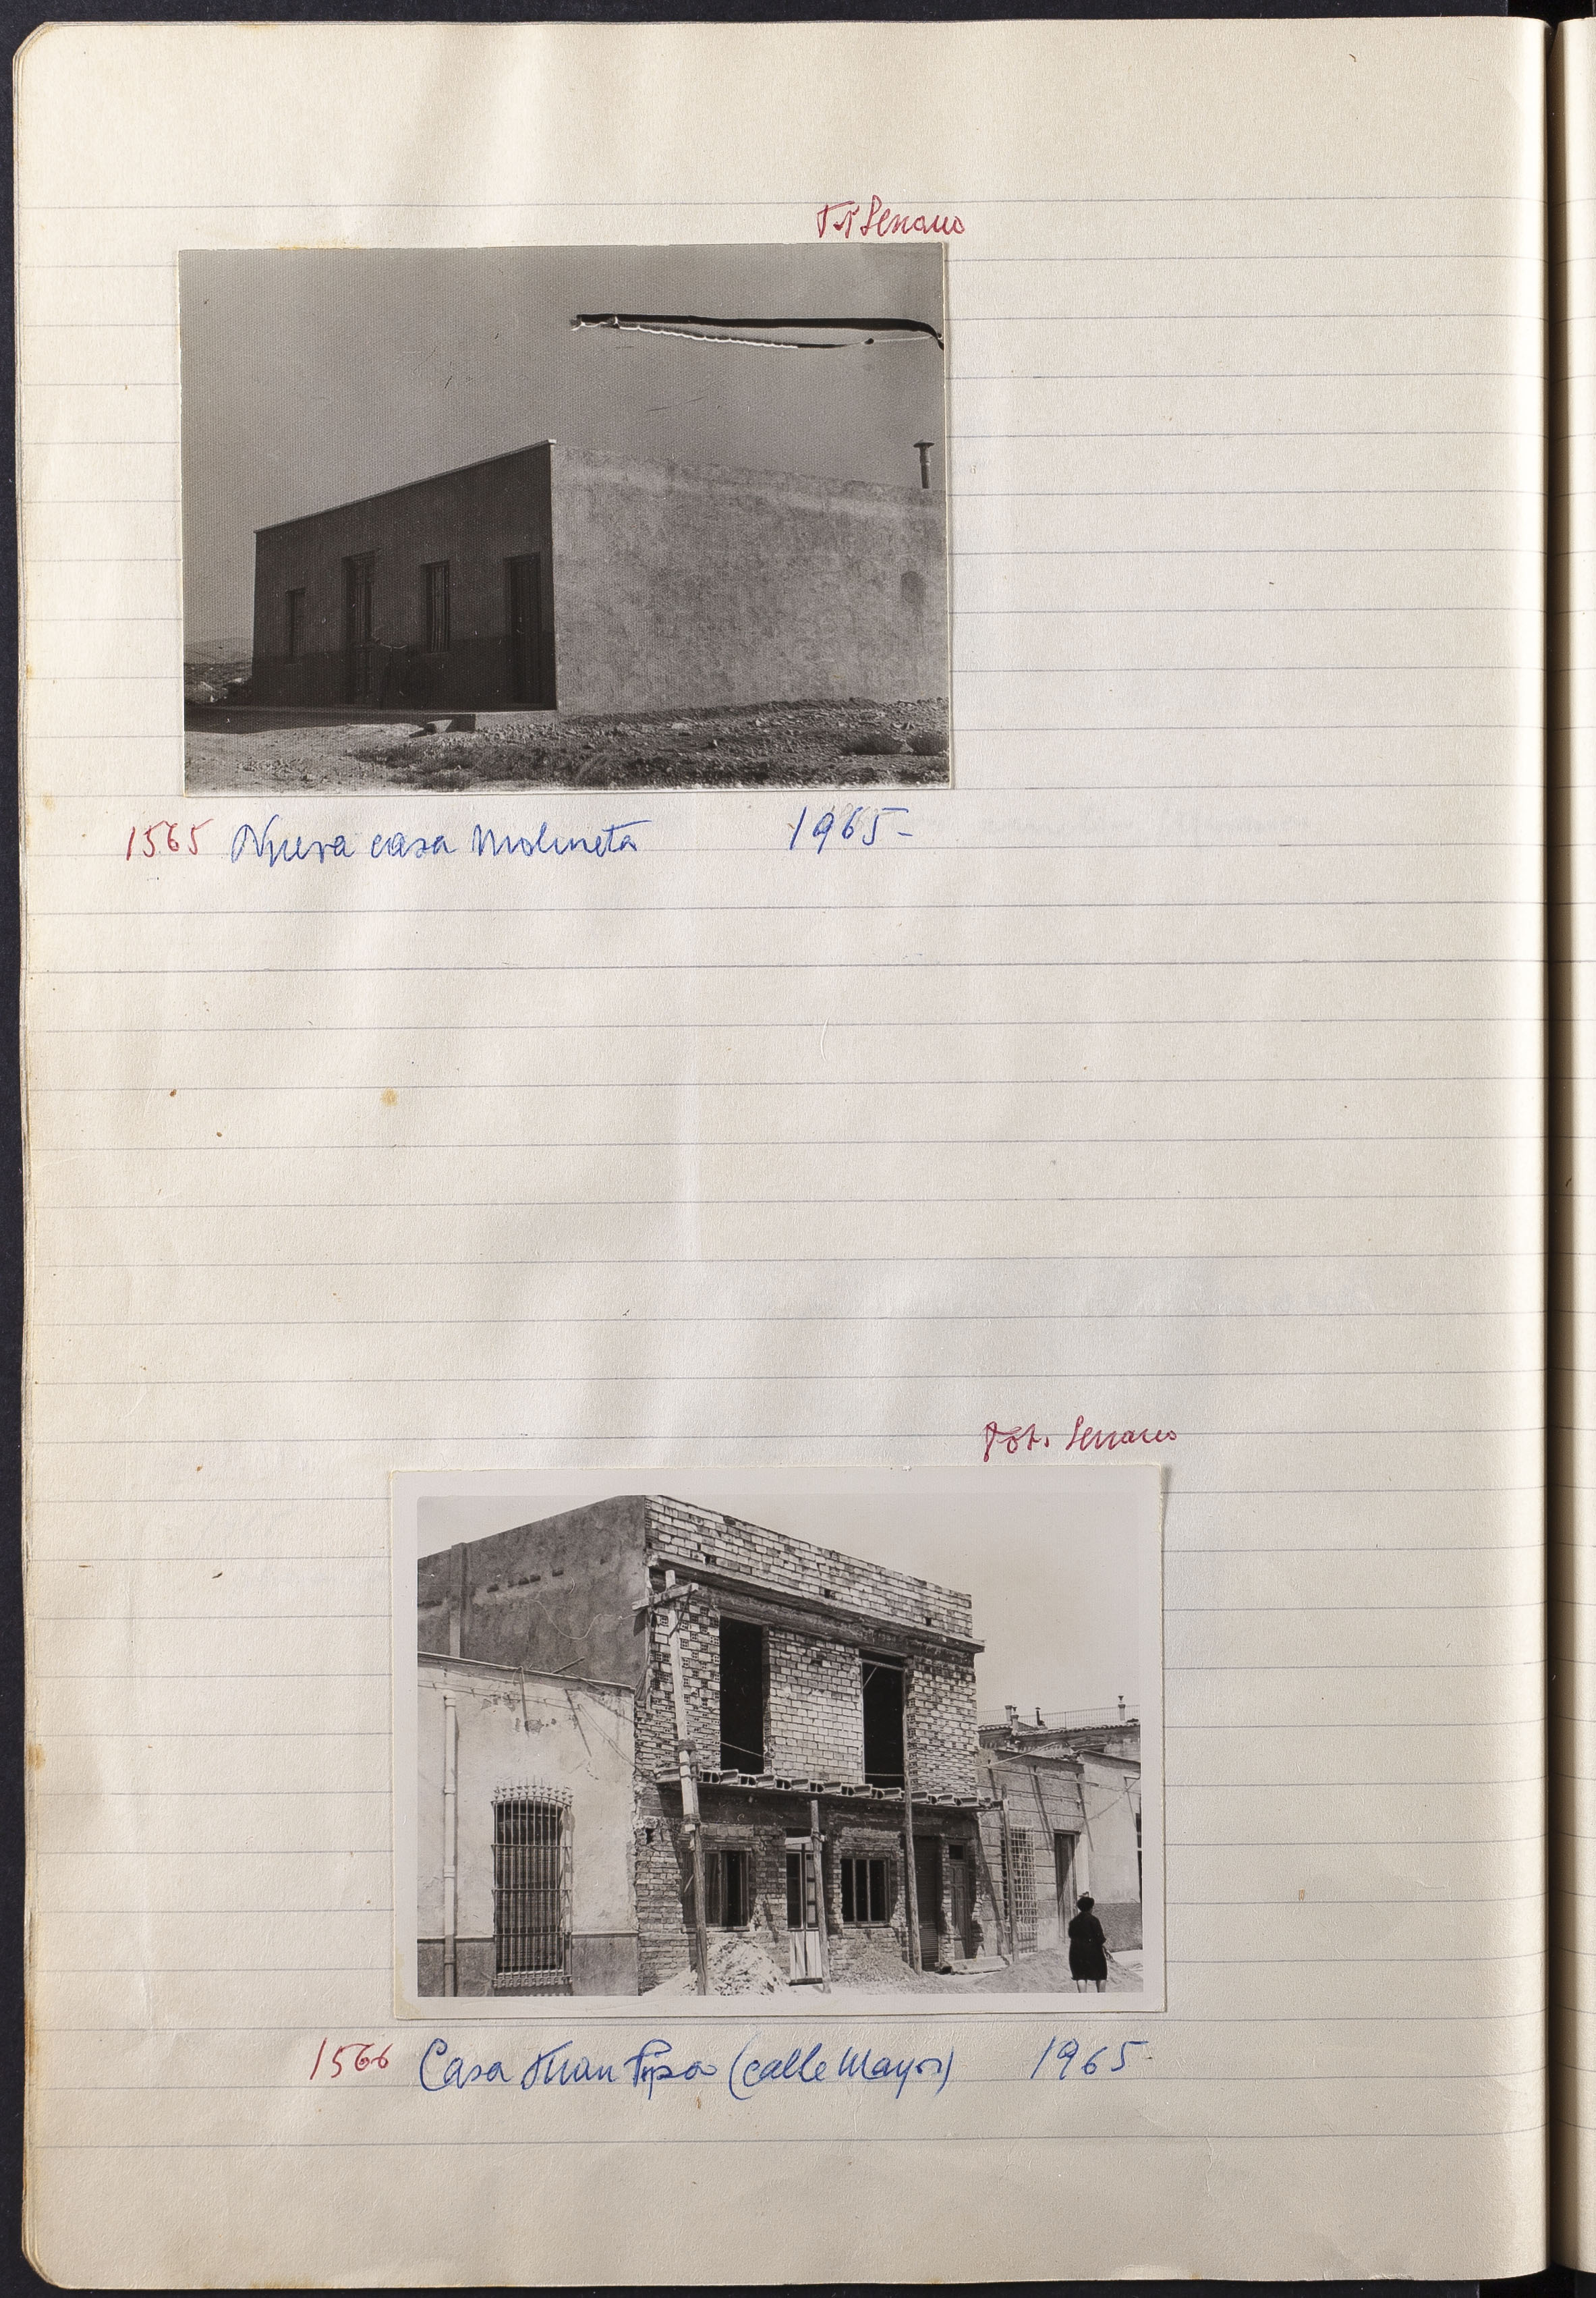 Fot Serrano
1565 Nueva casa Molineta 1965-
Fot. Serrano
1566 Casa Juan (calle Mayor) 1965-